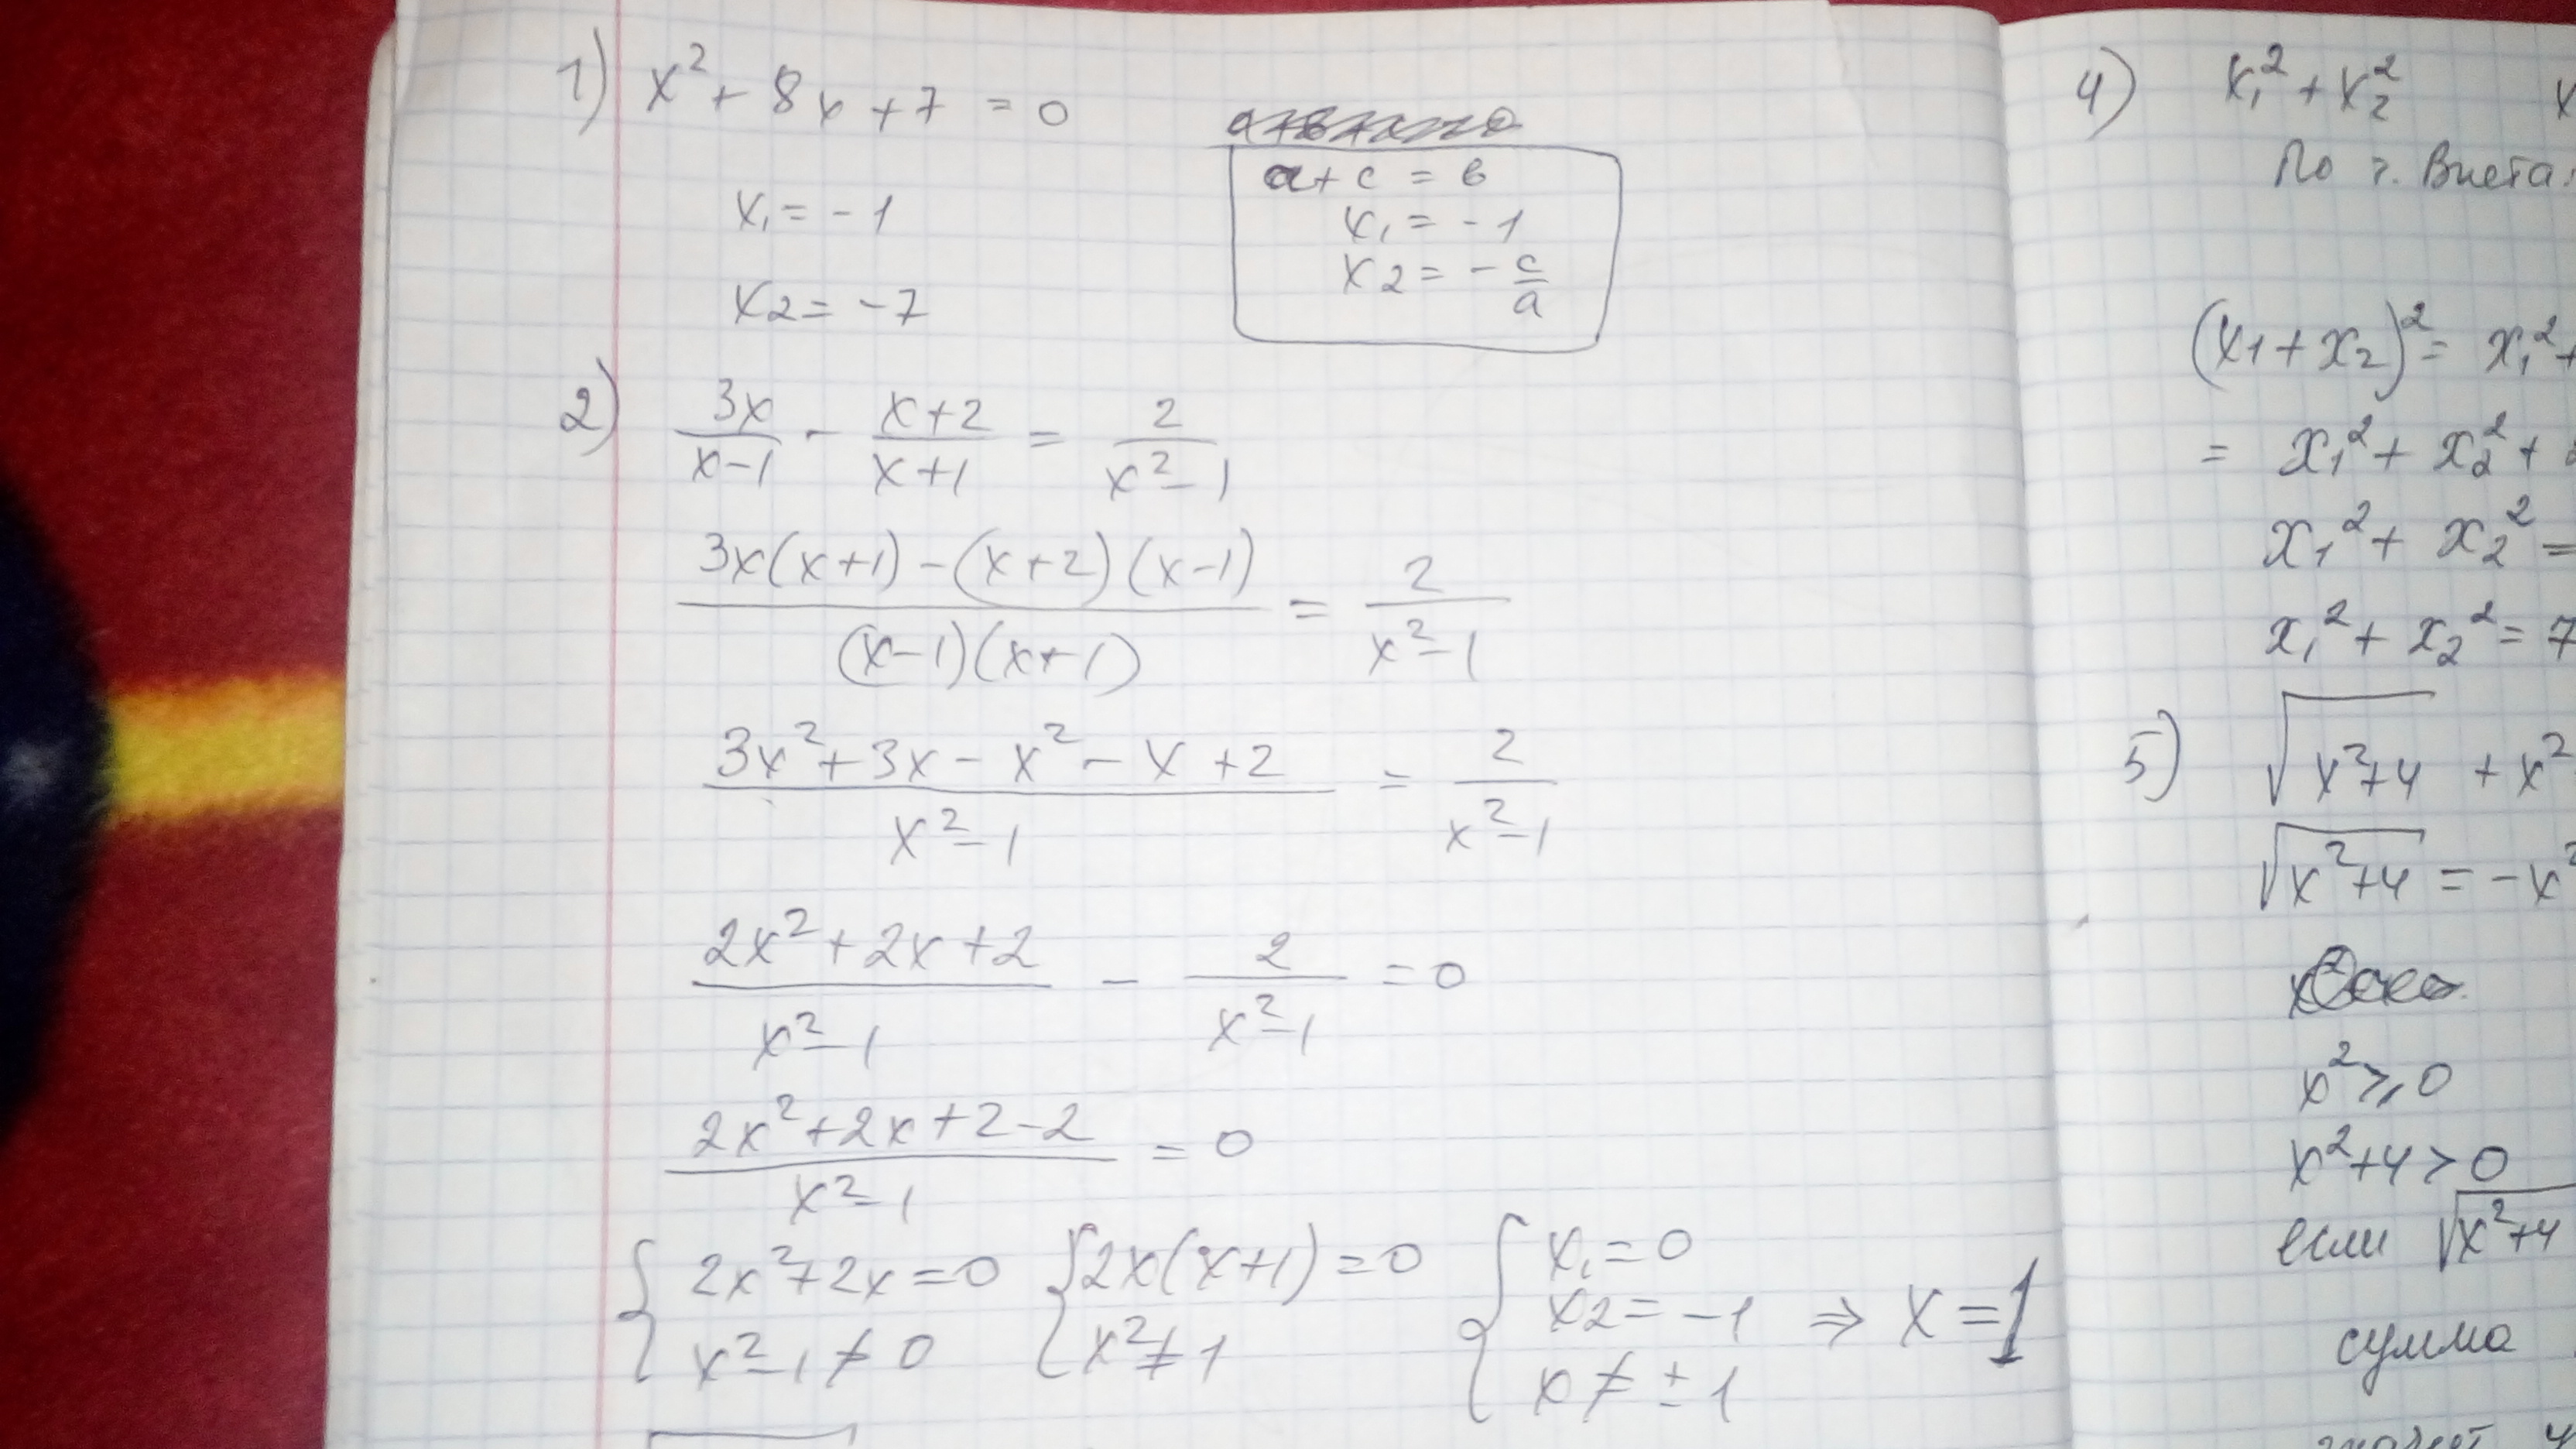 1) x² + 8x + 7 = 0
a + c = в
x₁ = -1
x2 = - c/a
x₁ = -1
x2 = -7
2) 3x/(x-1) - (x+2)/(x+1) = 2/(x²-1)
(3x(x+1) - (x+2)(x-1))/((x-1)(x+1)) = 2/(x²-1)
(3x² + 3x - x² - x + 2)/(x²-1) = 2/(x²-1)
(2x² + 2x + 2)/(x²-1) - 2/(x²-1) = 0
(2x² + 2x + 2 - 2)/(x²-1) = 0
{ 2x² + 2x = 0 { 2x(x+1) = 0 { x₁ = 0
x2 = -1 ⇒ x = 1
x² - 1 ≠ 0 x² ≠ 1 x ≠ ± 1
4) x₁² + x₂²
По т. Виета:
(x₁ + x₂)² = x₁² +
= x₁² + x₂² +
x₁² + x₂² =
x₁² + x₂² = 7
5) √(x²+4) + x²
√(x²+4) = -x²
x² ⩾ 0
x² + 4 > 0
если √(x²+4)
сумма